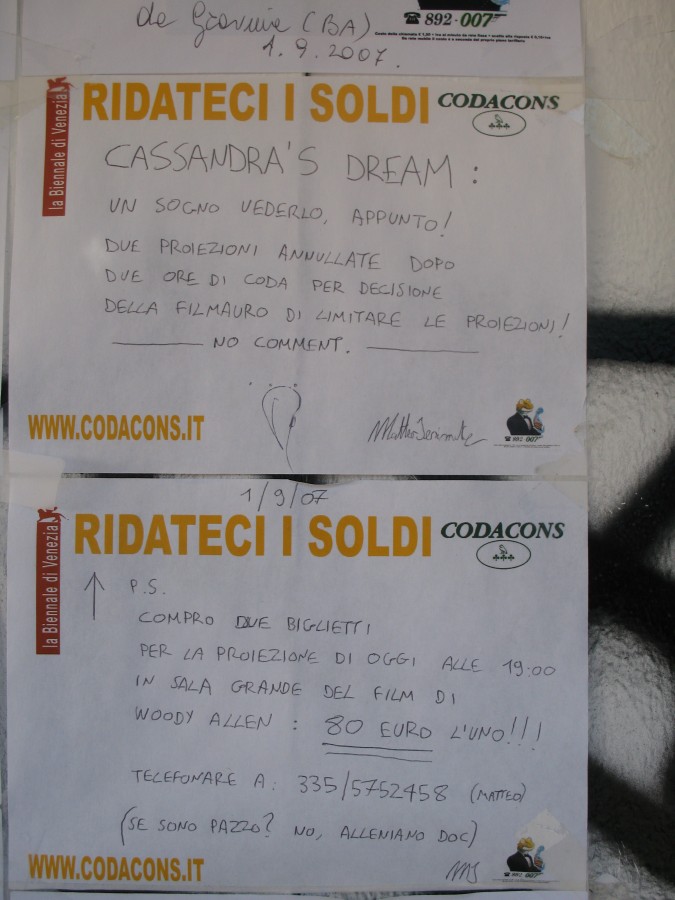 da Gravina (BA)
1.9.2007.
892-007
la Biennale di Venezia
RIDATECI I SOLDI
CODACONS
CASSANDRA'S DREAM :
UN SOGNO VEDERLO, APPUNTO!
DUE PROIEZIONI ANNULLATE DOPO
DUE ORE DI CODA PER DECISIONE
DELLA FILMAURO DI LIMITARE LE PROIEZIONI!
NO COMMENT.
WWW.CODACONS.IT
Matteo
892-007
1/9/07
la Biennale di Venezia
RIDATECI I SOLDI
CODACONS
P.S.
COMPRO DUE BIGLIETTI
PER LA PROIEZIONE DI OGGI ALLE 19:00
IN SALA GRANDE DEL FILM DI
WOODY ALLEN : 80 EURO L'UNO!!!
TELEFONARE A: 335/5752458 (MATTEO)
(SE SONO PAZZO? NO, ALLENIANO DOC)
WWW.CODACONS.IT
892-007